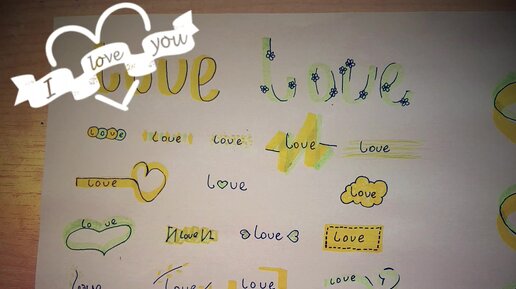 I love you
love love
love love love love love
love love love
love love love love
love love love